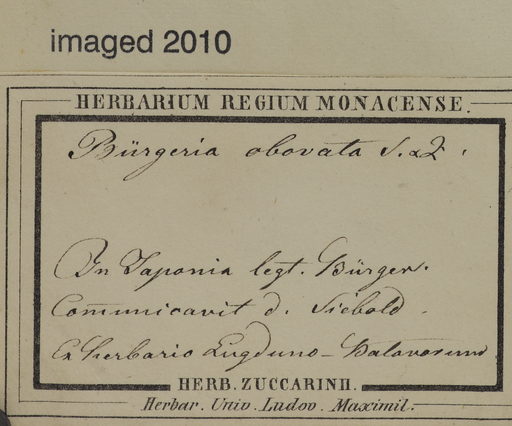 imaged 2010
HERBARIUM REGIUM MONACENSE.
Bürgeria obovata S. & Z.
In Japonia legt. Bürger.
Communicavit d. Siebold.
Ex herbario Lugduno-Batavorum
HERB. ZUCCARINII.
Herbar. Univ. Ludov. Maximil.